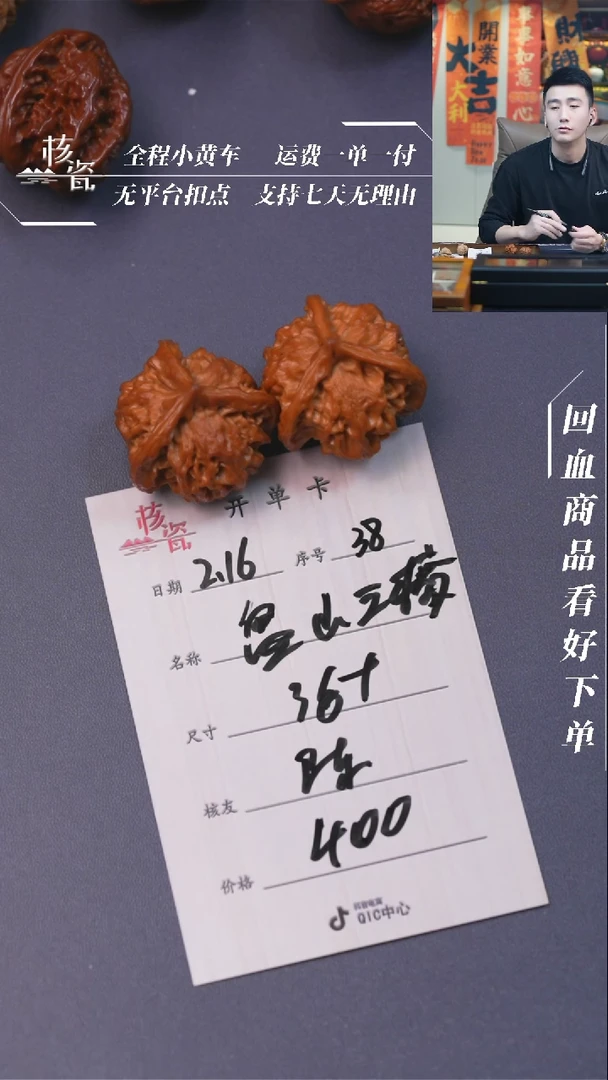 核瓷
全程小黄车 运费一单一付
无平台扣点 支持七天无理由
開業
大吉
大利
事事如意
心
財
回血商品看好下单
核瓷
开单卡
日期 2.16 序号 38
名称 盘山三棱
尺寸 36+
核友 陈
价格 400
抖音电商
QIC中心